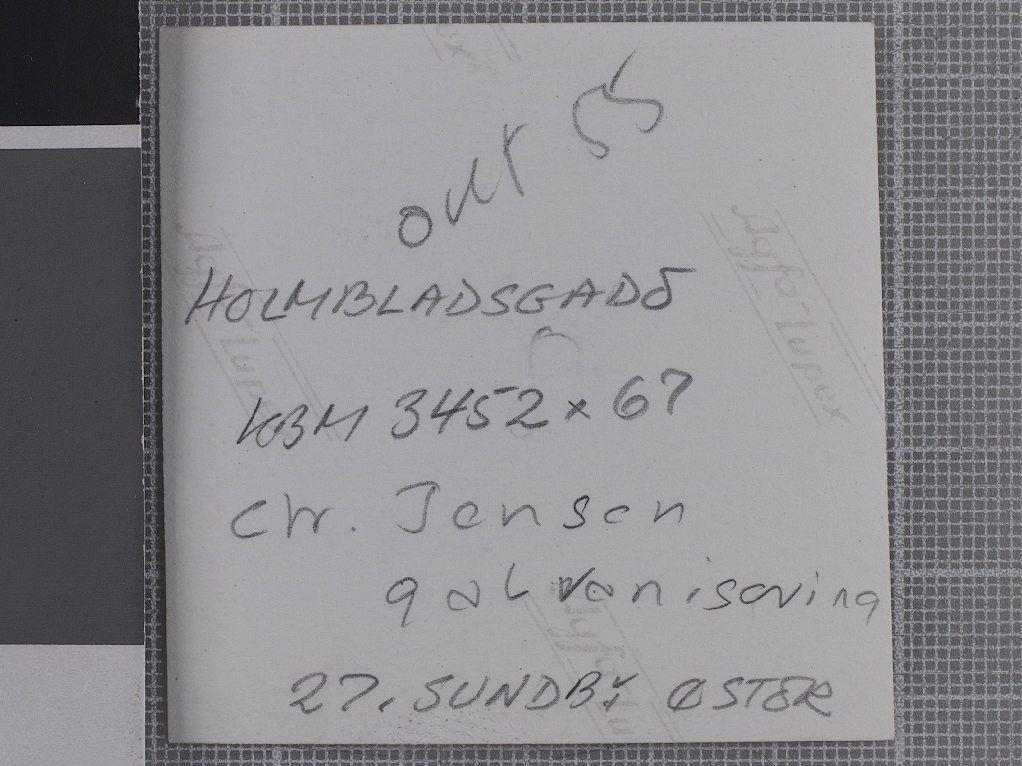 okt 55
HOLMBLADSGADE
KBM 3452 x 67
Chr. Jensen
galvanisering
27. SUNDBY ØSTER
Agfa-Lupex
Agfa-Lupex